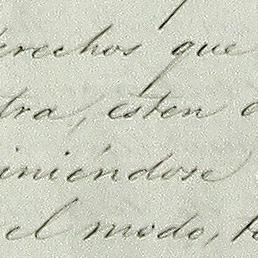 erechos que
tra, esten
iniéndose
el modo,